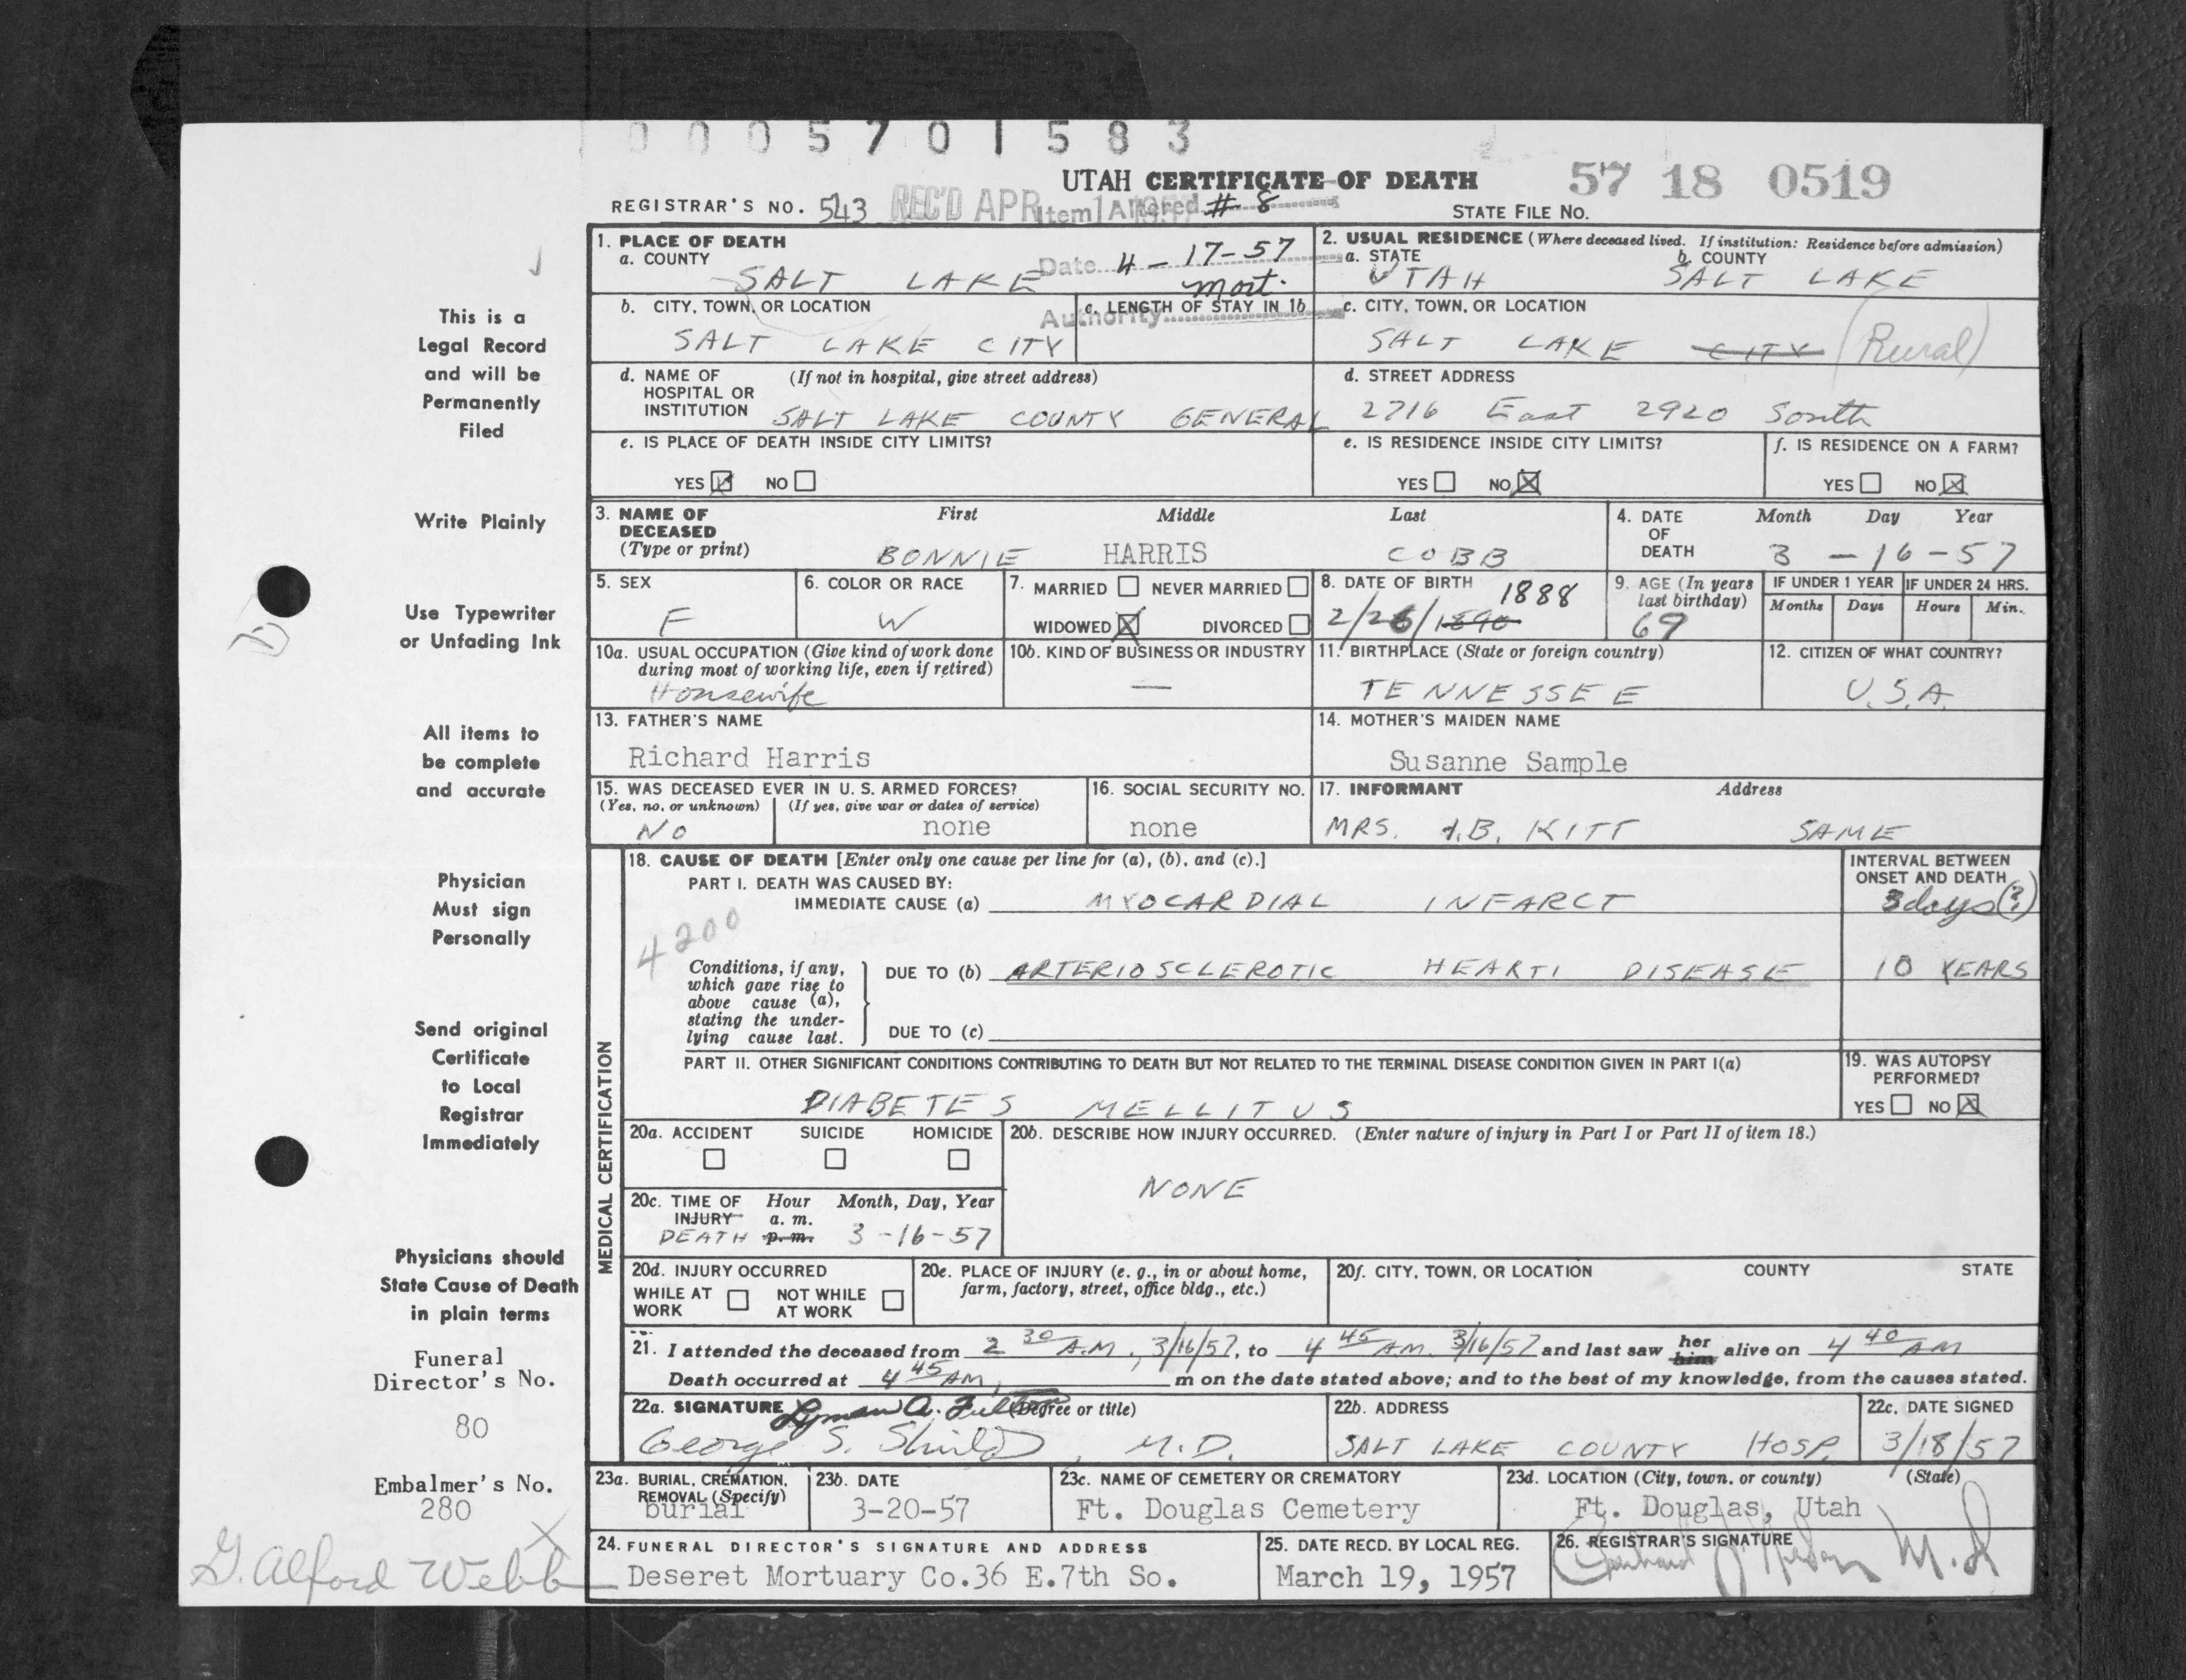 0005701583
UTAH CERTIFICATE OF DEATH
57 18 0519
REGISTRAR'S NO. 543 REC'D APR Item Altered # 8
STATE FILE No.
1. PLACE OF DEATH
a. COUNTY
SALT LAKE
Date 4-17-57
Mort.
Authority
2. USUAL RESIDENCE (Where deceased lived. If institution: Residence before admission)
a. STATE b. COUNTY
UTAH SALT LAKE
b. CITY, TOWN, OR LOCATION
SALT LAKE CITY
c. LENGTH OF STAY IN 1b
c. CITY, TOWN, OR LOCATION
SALT LAKE CITY (Rural)
d. NAME OF HOSPITAL OR INSTITUTION (If not in hospital, give street address)
SALT LAKE COUNTY GENERAL
d. STREET ADDRESS
2716 East 2920 South
e. IS PLACE OF DEATH INSIDE CITY LIMITS?
YES NO
e. IS RESIDENCE INSIDE CITY LIMITS?
YES NO
f. IS RESIDENCE ON A FARM?
YES NO
3. NAME OF DECEASED (Type or print)
First Middle Last
BONNIE HARRIS COBB
4. DATE OF DEATH
Month Day Year
3-16-57
5. SEX
F
6. COLOR OR RACE
W
7. MARRIED NEVER MARRIED
WIDOWED DIVORCED
8. DATE OF BIRTH 1888
2/26/1890
9. AGE (In years last birthday)
69
IF UNDER 1 YEAR IF UNDER 24 HRS.
Months Days Hours Min.
10a. USUAL OCCUPATION (Give kind of work done during most of working life, even if retired)
Housewife
10b. KIND OF BUSINESS OR INDUSTRY
—
11. BIRTHPLACE (State or foreign country)
TENNESSEE
12. CITIZEN OF WHAT COUNTRY?
U.S.A.
13. FATHER'S NAME
Richard Harris
14. MOTHER'S MAIDEN NAME
Susanne Sample
15. WAS DECEASED EVER IN U. S. ARMED FORCES?
(Yes, no, or unknown) (If yes, give war or dates of service)
NO none
16. SOCIAL SECURITY NO.
none
17. INFORMANT Address
MRS. I.B. KITT SAME
MEDICAL CERTIFICATION
18. CAUSE OF DEATH [Enter only one cause per line for (a), (b), and (c).]
INTERVAL BETWEEN ONSET AND DEATH
PART I. DEATH WAS CAUSED BY:
IMMEDIATE CAUSE (a) MYOCARDIAL INFARCT 3 days (?)
4200
Conditions, if any, which gave rise to above cause (a), stating the underlying cause last.
DUE TO (b) ARTERIOSCLEROTIC HEART DISEASE 10 YEARS
DUE TO (c)
PART II. OTHER SIGNIFICANT CONDITIONS CONTRIBUTING TO DEATH BUT NOT RELATED TO THE TERMINAL DISEASE CONDITION GIVEN IN PART I(a)
DIABETES MELLITUS
19. WAS AUTOPSY PERFORMED?
YES NO
20a. ACCIDENT SUICIDE HOMICIDE
20b. DESCRIBE HOW INJURY OCCURRED. (Enter nature of injury in Part I or Part II of item 18.)
NONE
20c. TIME OF INJURY Hour Month, Day, Year
a. m.
DEATH p. m. 3-16-57
20d. INJURY OCCURRED
WHILE AT WORK NOT WHILE AT WORK
20e. PLACE OF INJURY (e. g., in or about home, farm, factory, street, office bldg., etc.)
20f. CITY, TOWN, OR LOCATION COUNTY STATE
21. I attended the deceased from 2 30 A.M., 3/16/57, to 4 45 AM. 3/16/57 and last saw her him alive on 4 40 AM
Death occurred at 4 45 AM, m on the date stated above; and to the best of my knowledge, from the causes stated.
22a. SIGNATURE Lyman A. Fulton (Degree or title)
George S. Shields, M.D.
22b. ADDRESS
SALT LAKE COUNTY HOSP.
22c. DATE SIGNED
3/18/57
23a. BURIAL, CREMATION, REMOVAL (Specify)
burial
23b. DATE
3-20-57
23c. NAME OF CEMETERY OR CREMATORY
Ft. Douglas Cemetery
23d. LOCATION (City, town, or county) (State)
Ft. Douglas, Utah
24. FUNERAL DIRECTOR'S SIGNATURE AND ADDRESS
Deseret Mortuary Co. 36 E. 7th So.
25. DATE RECD. BY LOCAL REG.
March 19, 1957
26. REGISTRAR'S SIGNATURE
M.D.
This is a
Legal Record
and will be
Permanently
Filed
Write Plainly
Use Typewriter
or Unfading Ink
All items to
be complete
and accurate
Physician
Must sign
Personally
Send original
Certificate
to Local
Registrar
Immediately
Physicians should
State Cause of Death
in plain terms
Funeral
Director's No.
80
Embalmer's No.
280
G. Alford Webb